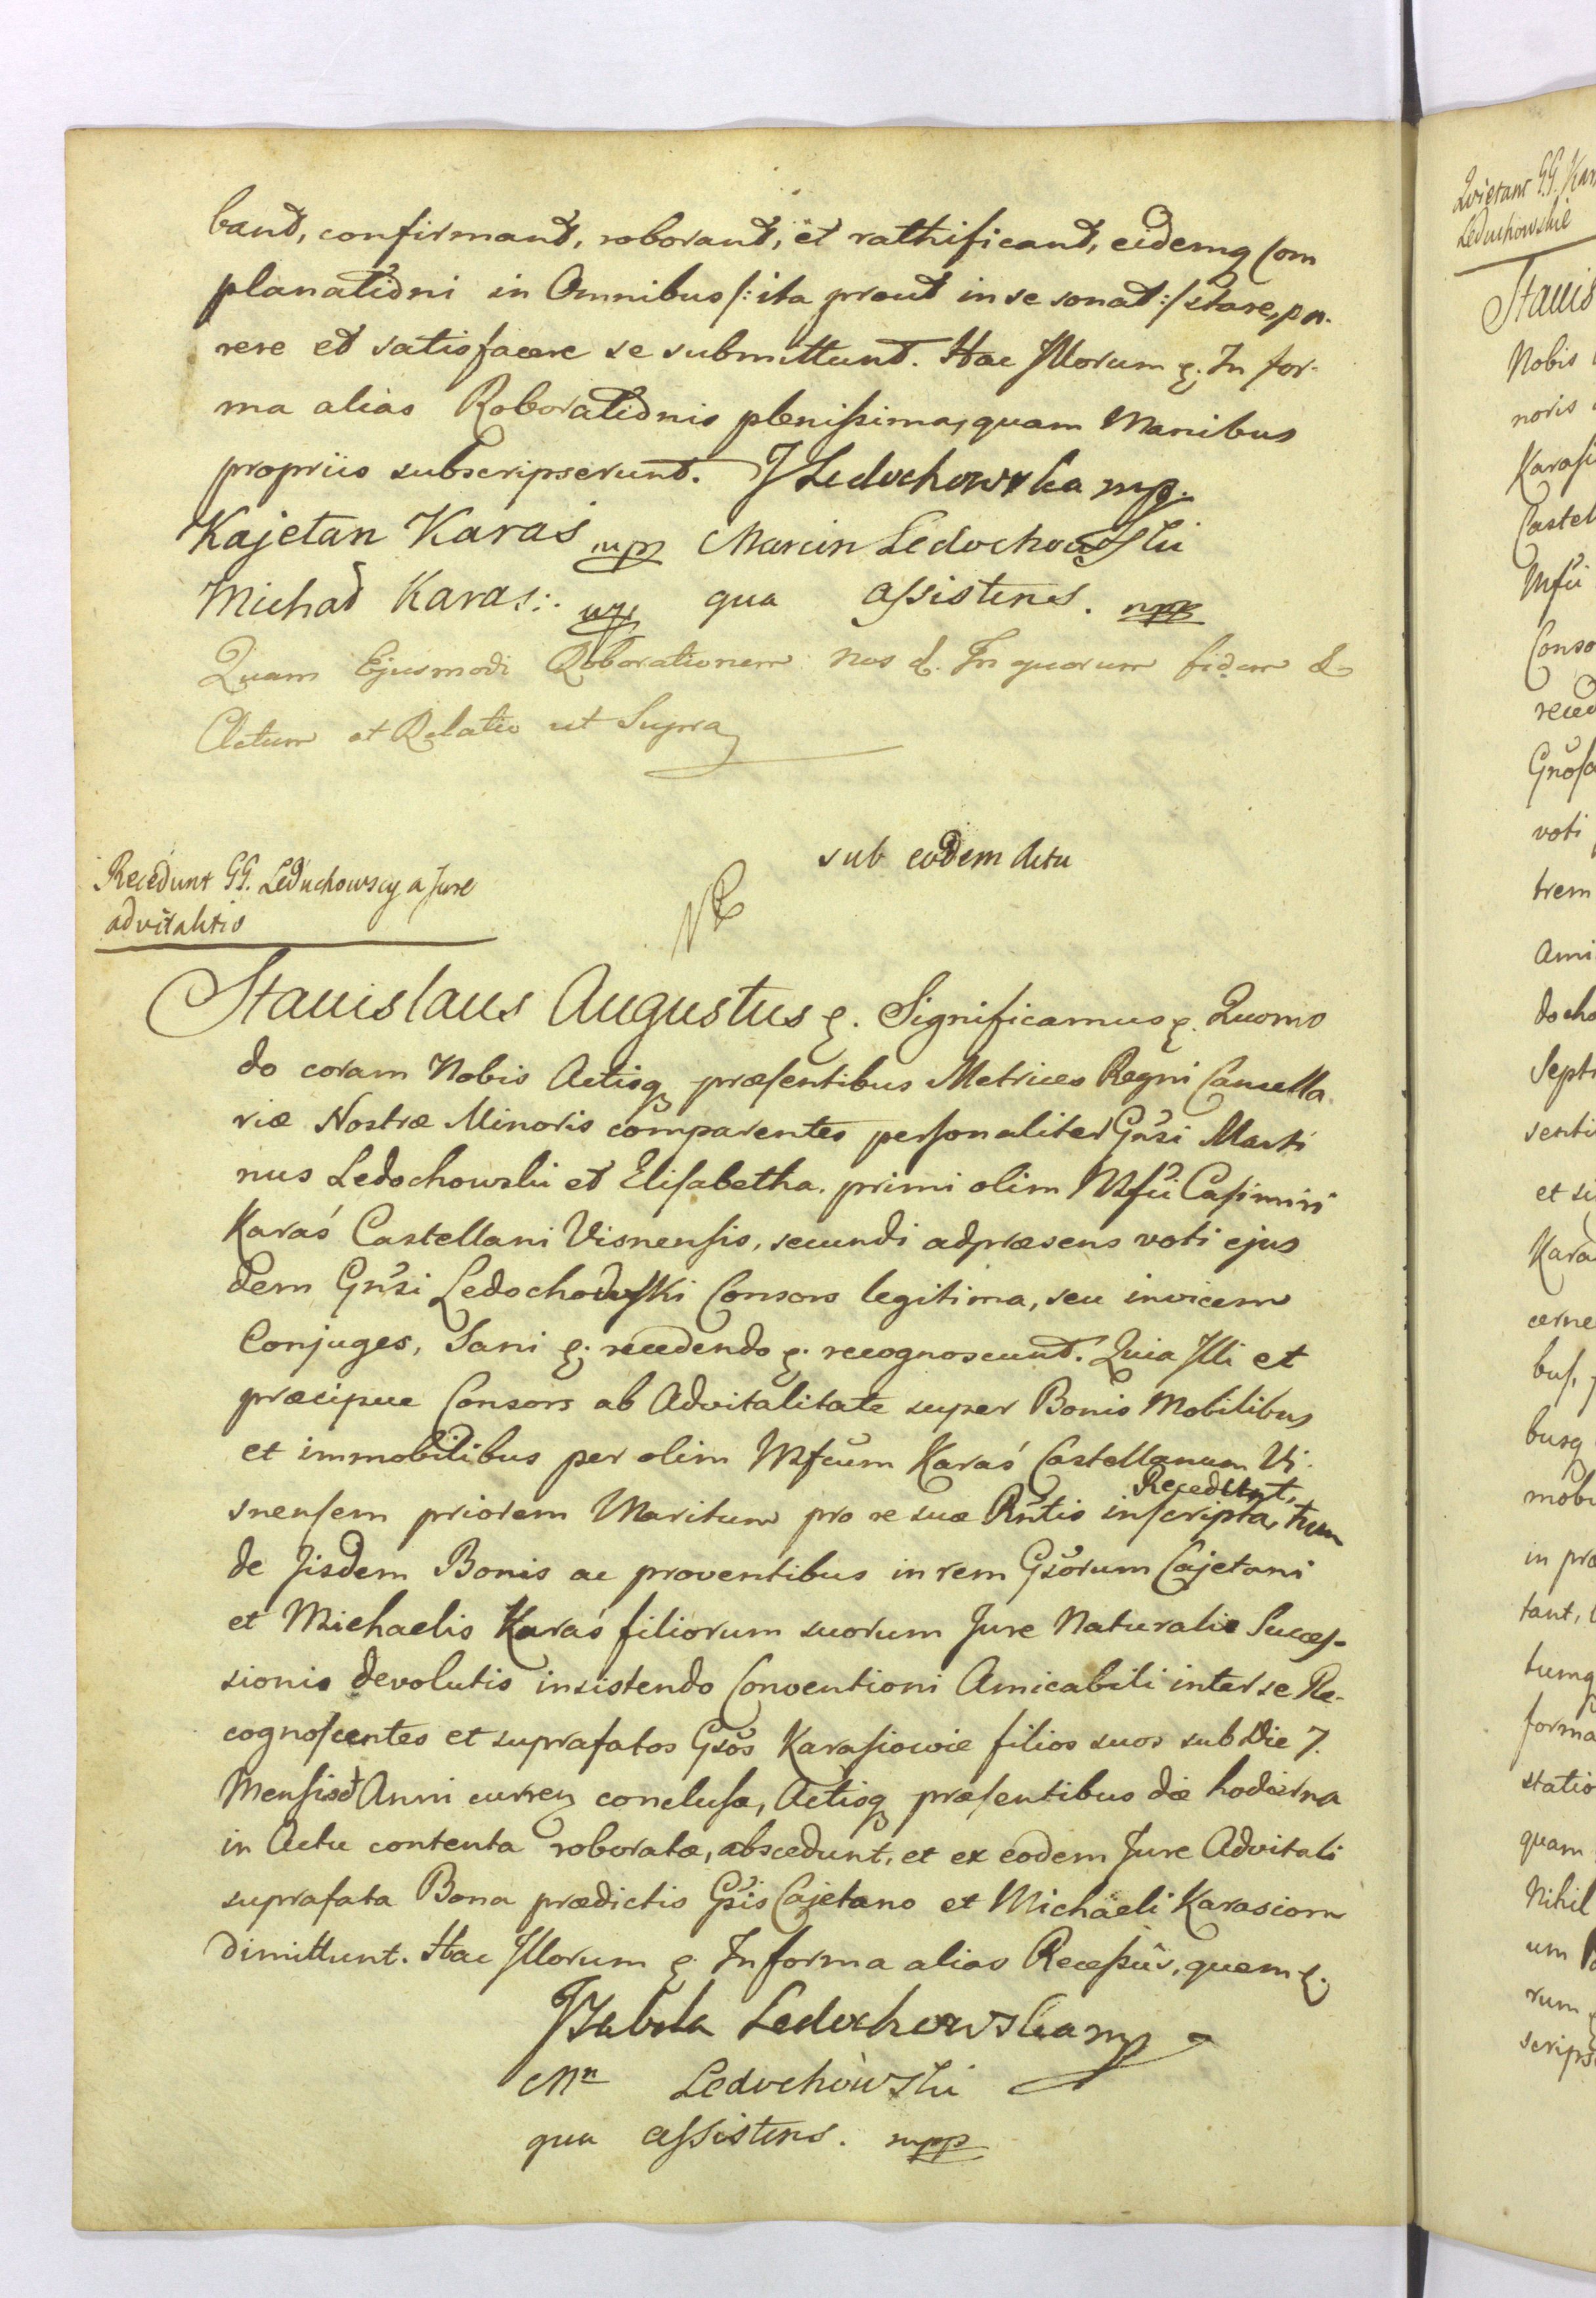 bant, confirmant, roborant, et rathificant, eidemq Com
planationi in Omnibus /: ita prout in se sonat :/ stare, pa-
rere et satisfacere se submittunt. Hac Illorum &. In for-
ma alias Roborationis plenissima, quam Manibus
propriis subscripserunt. J Ledochowska mp.
Kajetan Karaś mp Marcin Ledochowski
Michał Karaś:. mp qua assistens. mpp
Quam Ejusmodi Roborationem nos &. In quorum fidem &
Actum et Relatio ut Supra
sub eodem Actu
Recedunt GG. Leduchowscy a Jure
advitalitio
Stanislaus Augustus &. Significamus &. Quomo
do coram Nobis Actisq præsentibus Metrices Regni Cancella
riæ Nostræ Minoris comparentes personaliter Gnsi Marti
nus Ledochowski et Elisabetha. primi olim Mfci Casimiri
Karaś Castellani Visnensis, secundi adpræsens voti ejus
dem Gnsi Ledochowski Consors legitima, seu invicem
Conjuges, Sani &. recedendo &. recognoscunt. Quia Illi et
præcipue Consors ab Advitalitate super Bonis Mobilibus
et immobilibus per olim Mfcum Karaś Castellanum Vi-
Recedunt,
snensem priorem Maritum pro re suæ Rntis inscripta, tum
de Iisdem Bonis ac proventibus in rem Gsorum Cajetani
et Michaelis Karaś filiorum suorum Jure Naturalis Succes-
sionis devolutis insistendo Conventioni Amicabili inter se Re-
cognoscentes et suprafatos Gsos Karasiowie filios suos sub Die 7.
Mensis et Anni curren conclusæ, Actisq præsentibus die hodierna
in Actu contenta roboratæ, abscedunt, et ex eodem Jure Advitali
suprafata Bona prædictis Gsis Cajetano et Michaëli Karasiom
dimittunt. Hac Illorum &. In forma alias Recessûs, quem &.
Izabela Ledochowska mp
Mn Ledochowski
qua assistens. mpp
Quietant GG. Kar
Leduchowskie
Stanis
Nobis
noris
Karasi
Castel
Mfci
Conso
reced
Gnosa
voti
trem
Ami
docho
Septi
senti
et su
Kara
cerne
bus,
busq
mobi
in præ
tant,
tumq
forma
statio
quam
Nihil
um
rum
scrips